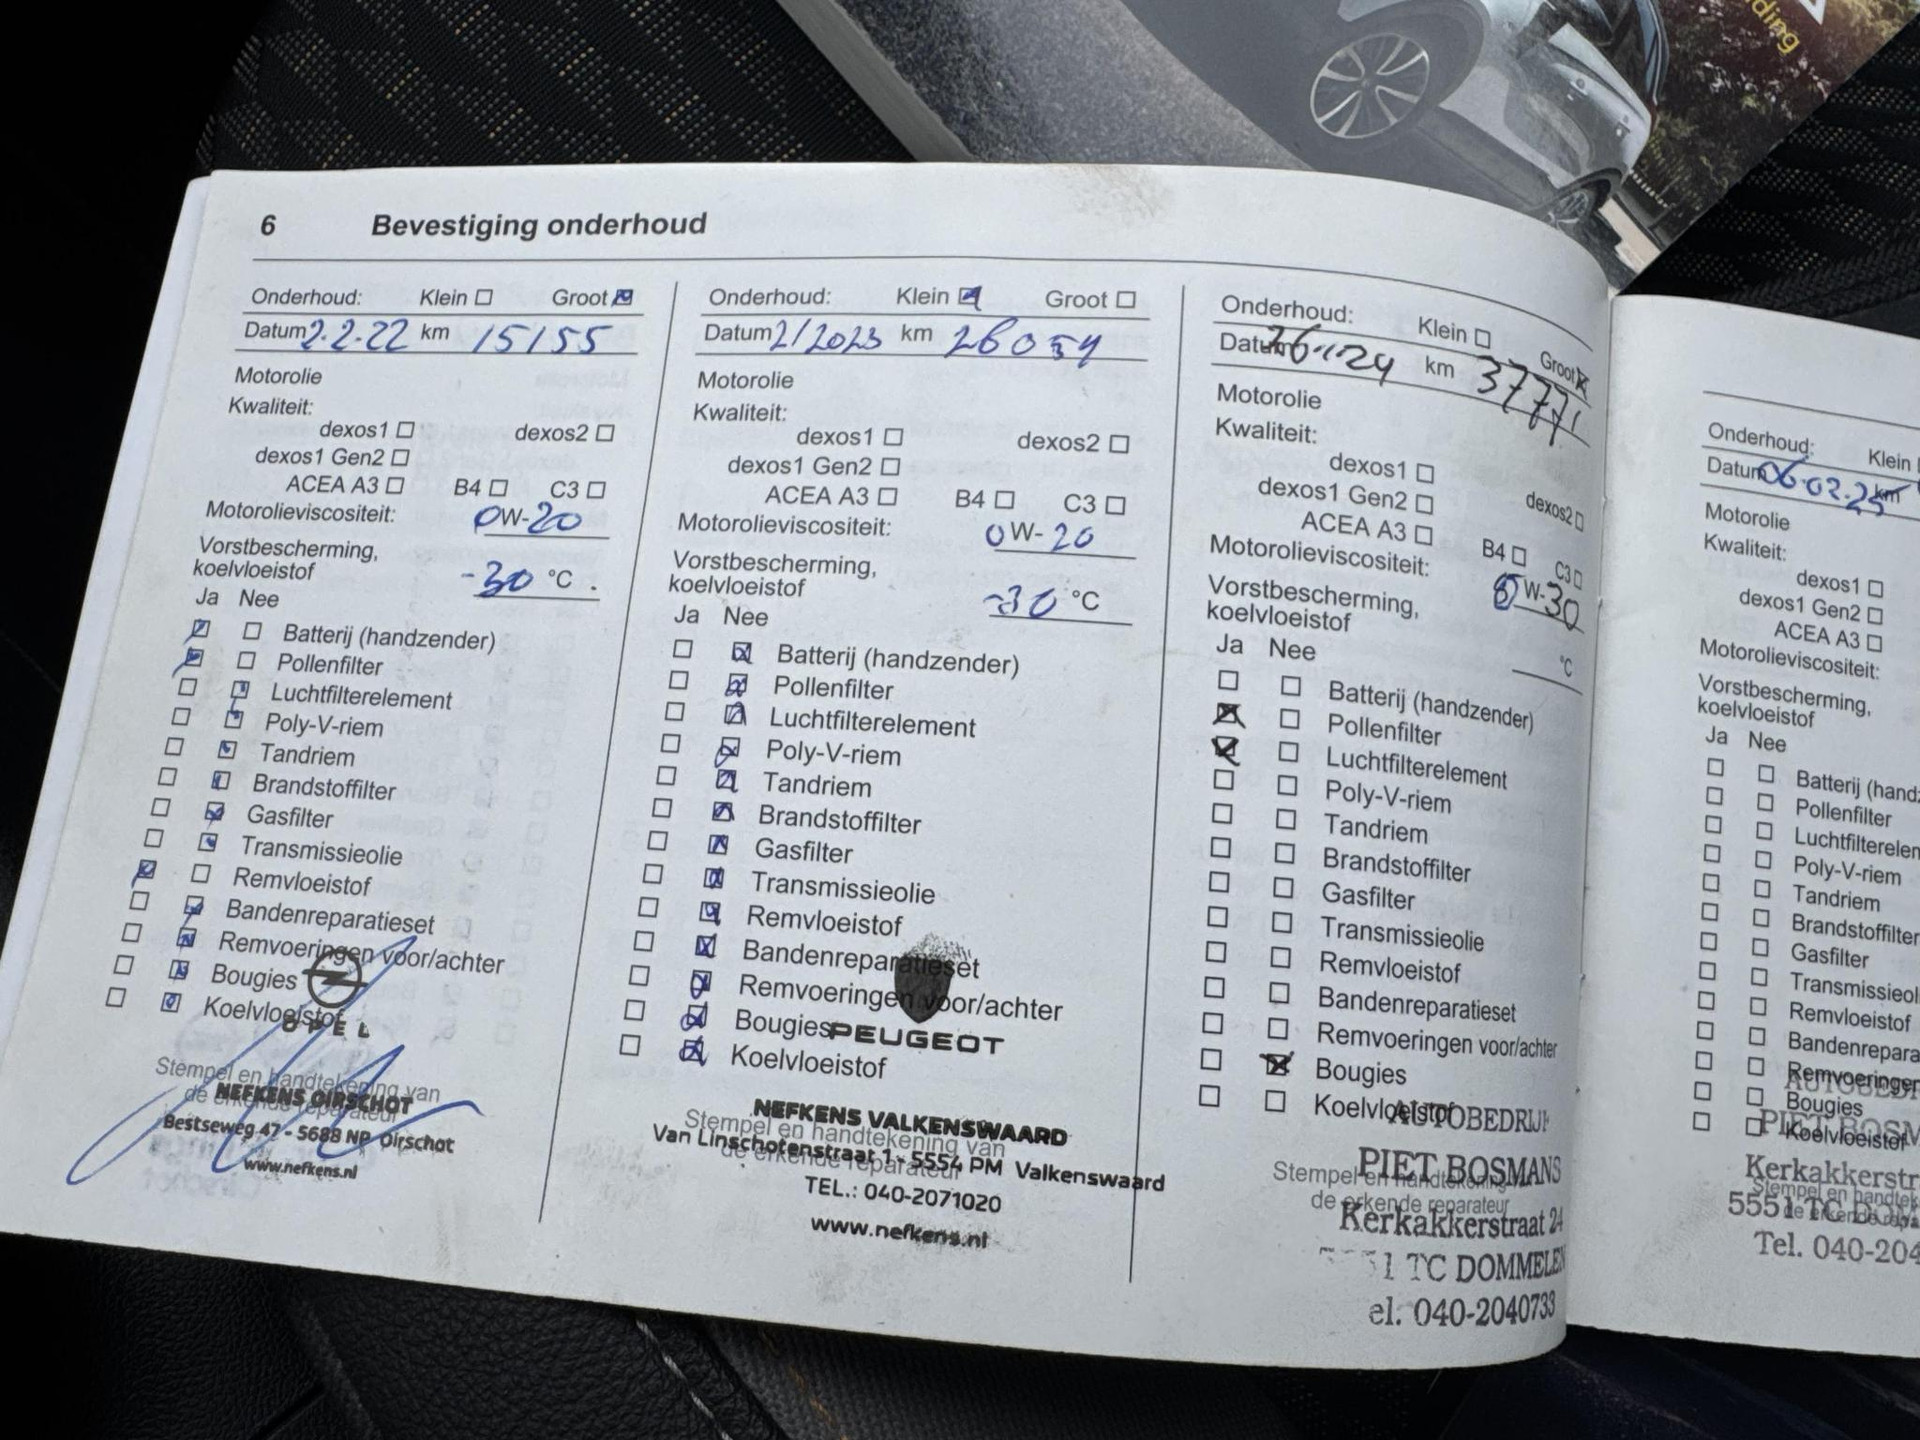 ding
6 Bevestiging onderhoud
Onderhoud: Klein Groot
Datum 2.2.22 km 15155
Motorolie
Kwaliteit:
dexos1 dexos2
dexos1 Gen2
ACEA A3 B4 C3
Motorolieviscositeit: 0W-20
Vorstbescherming,
koelvloeistof -30 °C
Ja Nee
Batterij (handzender)
Pollenfilter
Luchtfilterelement
Poly-V-riem
Tandriem
Brandstoffilter
Gasfilter
Transmissieolie
Remvloeistof
Bandenreparatieset
Remvoeringen voor/achter
Bougies
Koelvloeistof
OPEL
Stempel en handtekening van
de erkende reparateur
NEFKENS OIRSCHOT
Bestseweg 47 - 5688 NP Oirschot
www.nefkens.nl
Onderhoud: Klein Groot
Datum 2/2023 km 26054
Motorolie
Kwaliteit:
dexos1 dexos2
dexos1 Gen2
ACEA A3 B4 C3
Motorolieviscositeit: 0W-20
Vorstbescherming,
koelvloeistof -30 °C
Ja Nee
Batterij (handzender)
Pollenfilter
Luchtfilterelement
Poly-V-riem
Tandriem
Brandstoffilter
Gasfilter
Transmissieolie
Remvloeistof
Bandenreparatieset
Remvoeringen voor/achter
Bougies
Koelvloeistof
PEUGEOT
NEFKENS VALKENSWAARD
Stempel en handtekening van
Van Linschotenstraat 1 - 5554 PM Valkenswaard
de erkende reparateur
TEL.: 040-2071020
www.nefkens.nl
Onderhoud: Klein Groot
Datum km 37771
Motorolie
Kwaliteit:
dexos1
dexos1 Gen2 dexos2
ACEA A3 B4 C3
Motorolieviscositeit: W-30
Vorstbescherming,
koelvloeistof °C
Ja Nee
Batterij (handzender)
Pollenfilter
Luchtfilterelement
Poly-V-riem
Tandriem
Brandstoffilter
Gasfilter
Transmissieolie
Remvloeistof
Bandenreparatieset
Remvoeringen voor/achter
Bougies
Koelvloeistof
AUTOBEDRIJF
PIET BOSMANS
Stempel en handtekening
de erkende reparateur
Kerkakkerstraat 24
51 TC DOMMELEN
el. 040-2040733
Onderhoud: Klein
Datum 06.02.25 km
Motorolie
Kwaliteit:
dexos1
dexos1 Gen2
ACEA A3
Motorolieviscositeit:
Vorstbescherming,
koelvloeistof
Ja Nee
Batterij (handz
Pollenfilter
Luchtfilterelem
Poly-V-riem
Tandriem
Brandstoffilter
Gasfilter
Transmissieol
Remvloeistof
Bandenrepara
Remvoeringen
Bougies
Koelvloeistof
AUTOBEDRI
PIET BOSM
Kerkakkerstr
Stempel en handtek
5551 TC DOM
de erkende repa
Tel. 040-204